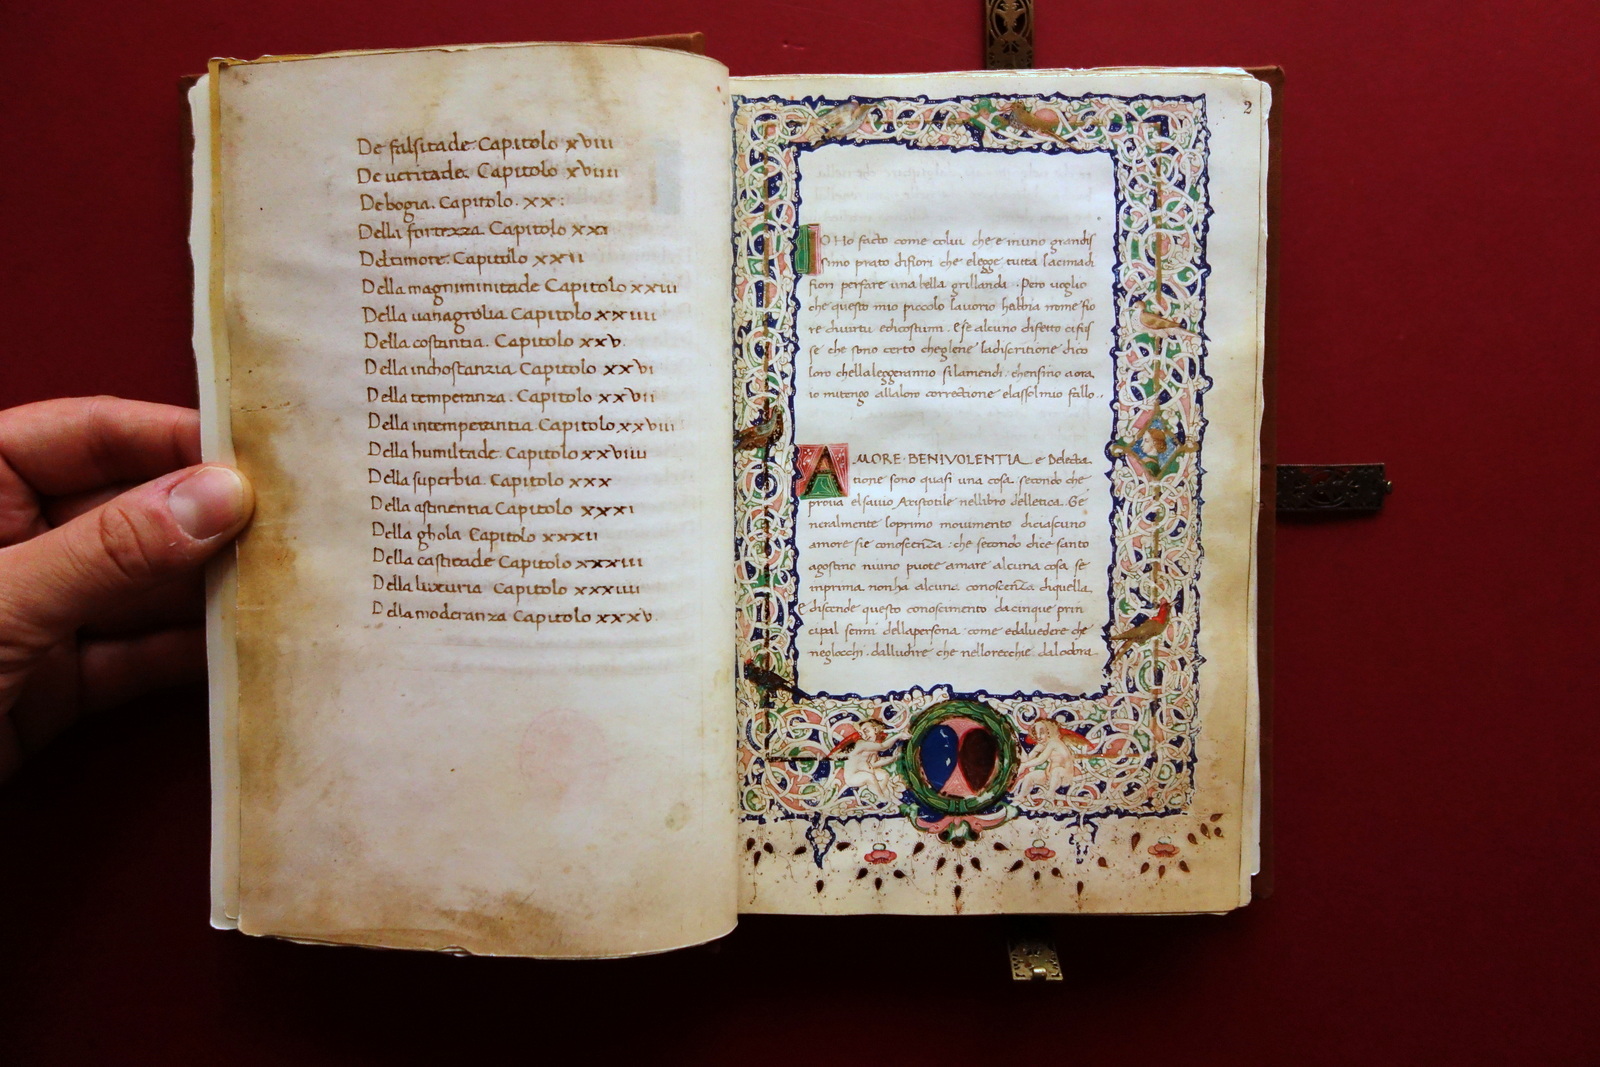 De falsitade Capitolo xviii
De veritade. Capitolo xviiii
De bogia. Capitolo. xx:
Della fortezza Capitolo xxi
Del timore. Capitolo xxii
Della magniminitade Capitolo xxiii
Della vanagrolia Capitolo xxiiii
Della costantia. Capitolo xxv.
Della inchostanzia Capitolo xxvi
Della temperanza. Capitolo xxvii
Della intemperantia Capitolo xxviii
Della humiltade. Capitolo xxviiii
Della superbia. Capitolo xxx
Della astinentia Capitolo xxxi
Della ghola Capitolo xxxii
Della castitade Capitolo xxxiii
Della luxuria Capitolo xxxiiii
Della moderanza Capitolo xxxv.
2
IO Ho facto come colui che e in uno grandis
simo prato di fiori che elegge tutta la cima di
fiori per fare una bella grillanda. Pero voglio
che questo mio piccolo lavorio habbia nome fio
re di virtu e di costumi. E se alcuno difetto ci fus
se che sono certo che glene la discritione di co
loro che lla leggeranno si lamendi. che insino a ora
io mi tengo alla loro correctione e lasso l mio fallo.
AMORE BENIVOLENTIA e Delecta
tione sono quasi una cosa. secondo che
prova el savio Aristotile nel libro dell etica. Ge
neralmente lo primo movimento di ciascuno
amore sie conoscenza: che secondo dice santo
agostino niuno puote amare alcuna cosa se
imprima non ha alcuna conoscenza di quella.
E discende questo conoscimento da cinque prin
cipal senni della persona. come e dal vedere che
negl occhi. dall udire che nell orecchie. dal odora